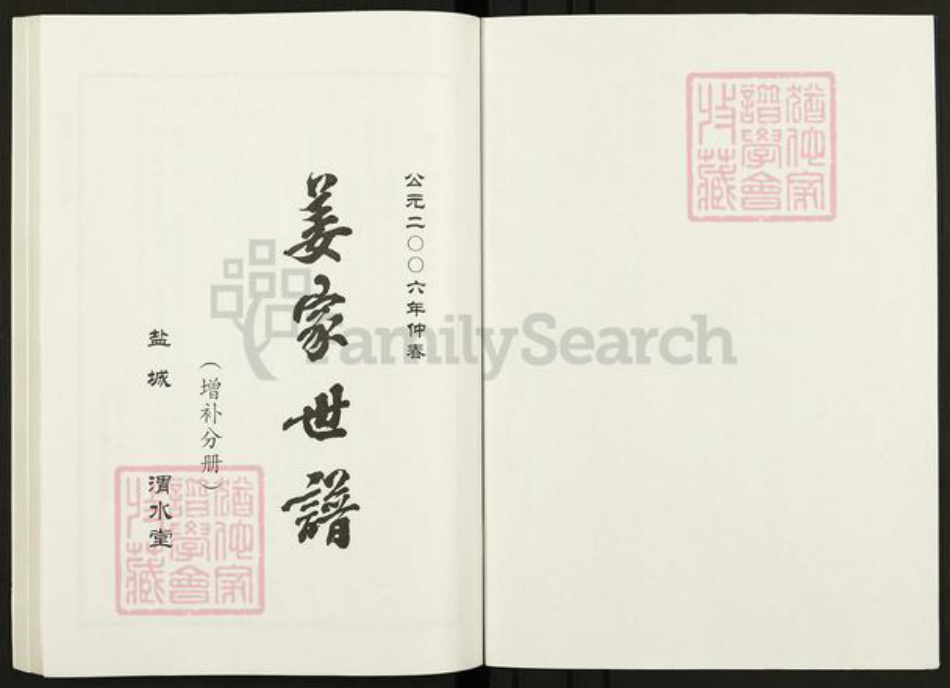 猶他家
譜學會
收藏
公元二〇〇六年仲春
姜家世譜
（增补分册）
盐城 渭水堂
猶他家
譜學會
收藏
FamilySearch